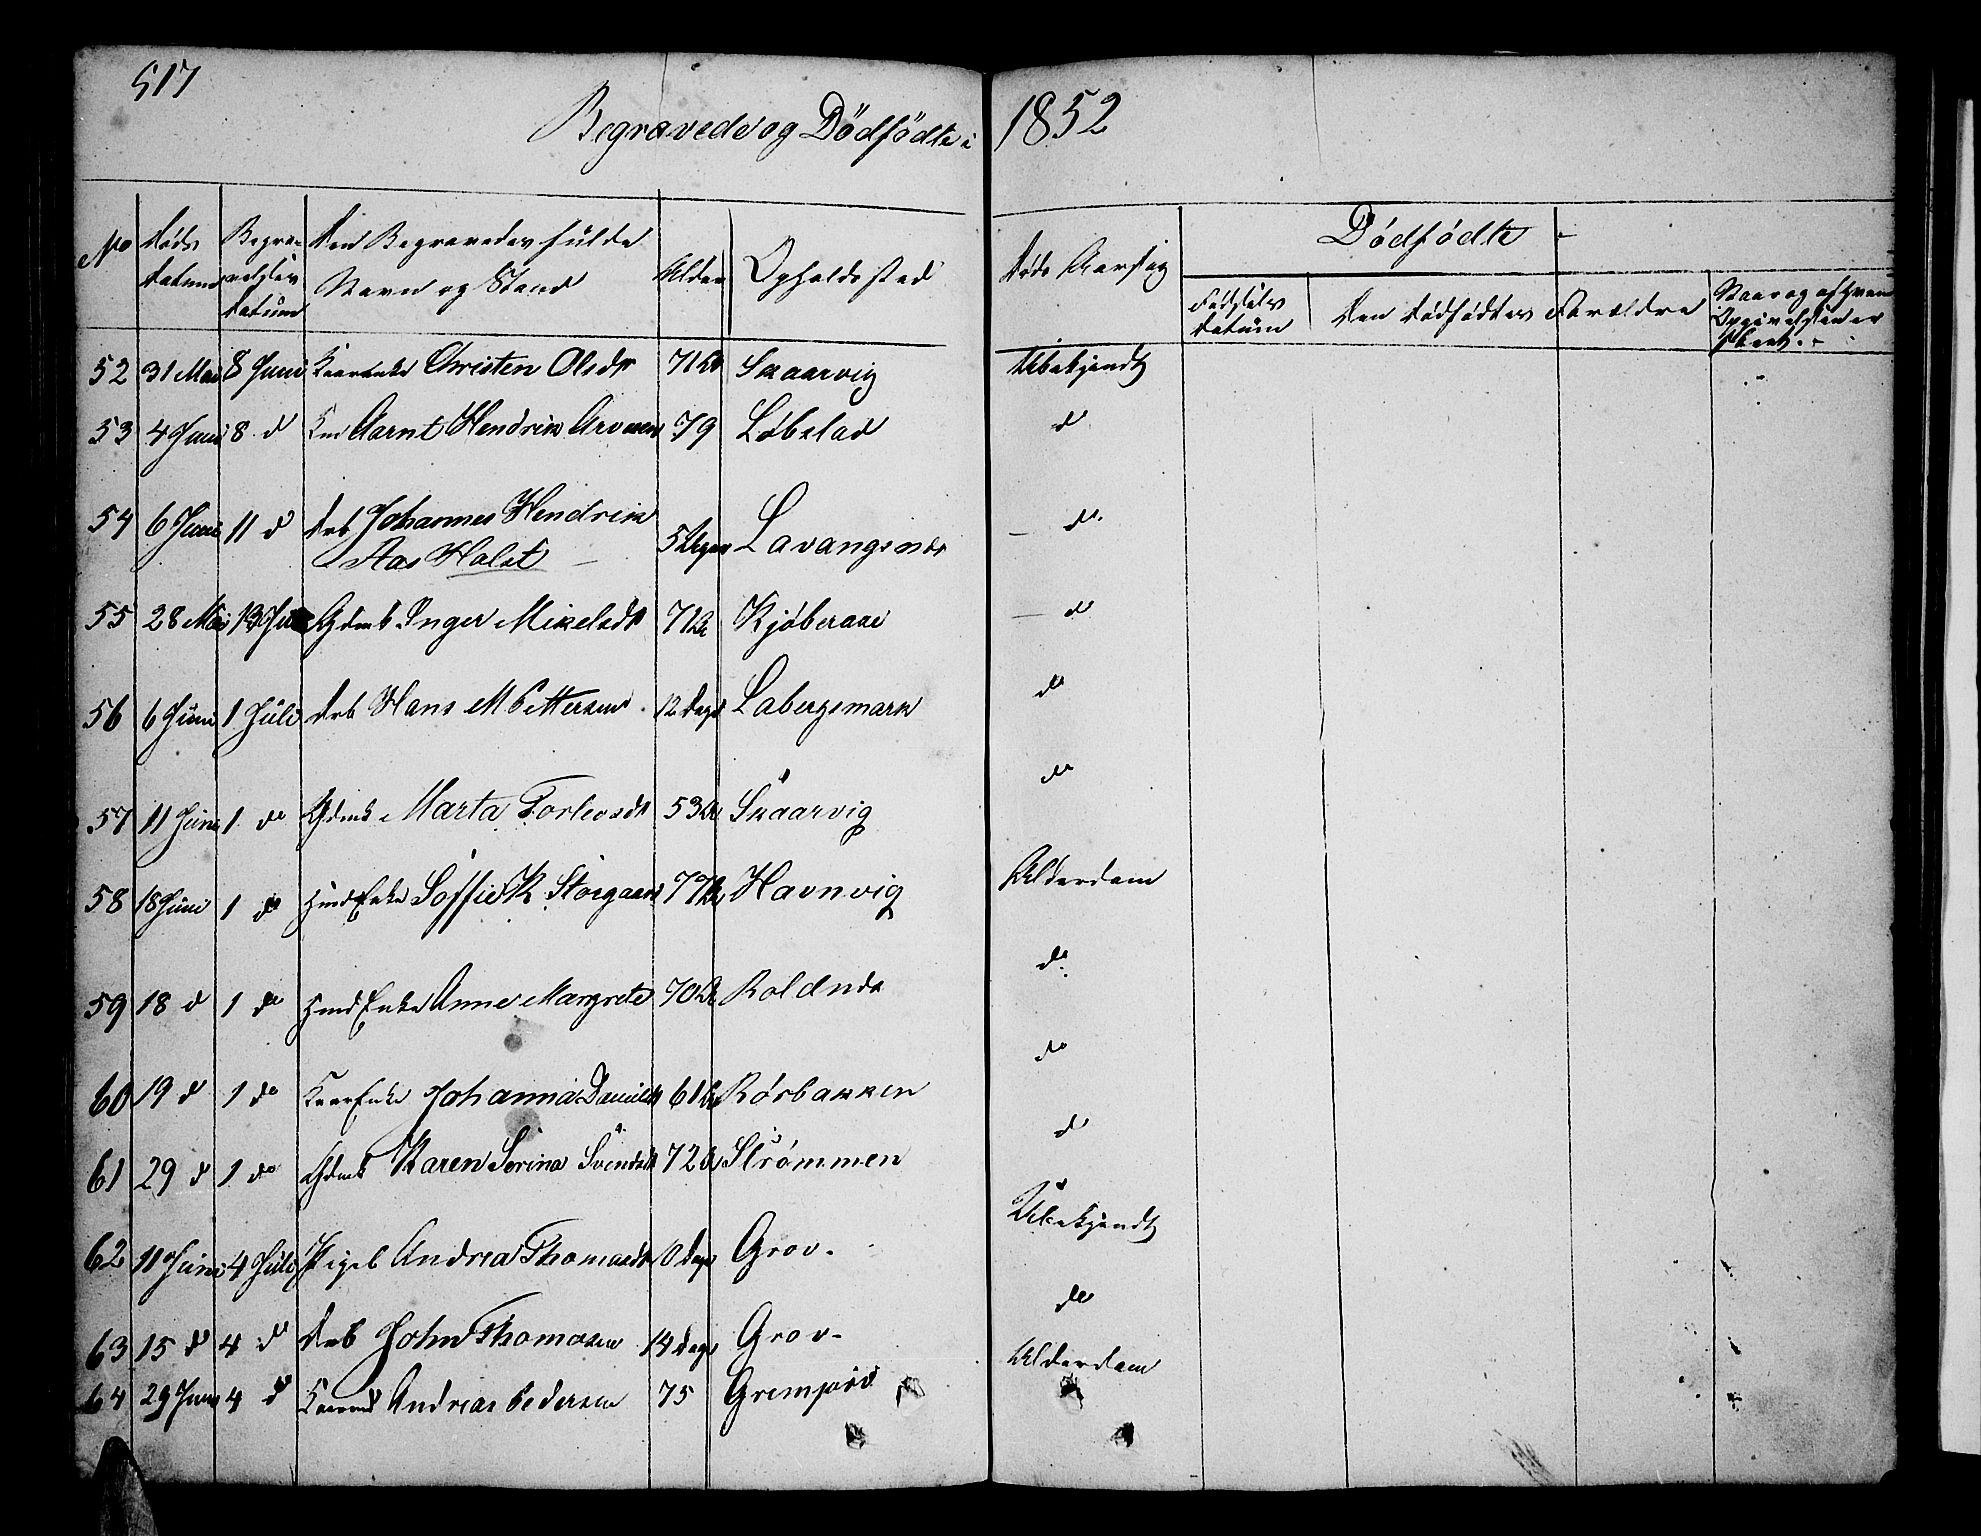 517
Begravede og Dödfödte i 1852
No Döds Datum Begravelses Datum Den Begravedes fulde Navn og Stand Alder Opholdssted Döds Aarsag Dödfödte
Födsels Datum Den Dödfödtes Forældre Naar og af Hvem Opgivelsen er skeet
52 31 Mai 8 Juni Christen Olsdr 71 Aar Skaarvig Ubekjendt
53 4 Juni 8 d Aarnt Hendrik 79 Løbslad d
54 6 Juni 11 d Drb Johannes Hendrik
Aas Holst 5 Uger Lavangsnes do
55 28 Mai 13 Gdmk Inger Mikelsdt 71 Aar Kjøberaae d
56 6 Juni 1 Juli Drb Hans M Pettersen 12 Dage Labergsmark do
57 11 Juni 1 do Gdmk Marta Torleosdt 53 Aar Skaarvig do
58 18 Juni 1 do HmdEnke Soffie K Storgaard 77 Aar Havnvig Alderdom
59 18 d 1 do HmdEnke Anne Margrete 70 Aar Roldnds do
60 19 d 1 do KaarEnke Johanna Danielsdt 61 Aar Rørbakken do
61 29 d 1 do Gdmk Karen Sørina Svendsdt 72 Aar Strömmen d
62 11 Juni 4 Juli Pigeb Andrea Thomasdt 10 Dage Grov Ubekjendt
63 15 d 4 do Drb John Thomasen 14 Dage Grov do
64 29 Juni 4 d Kaarmd Andreas Pedersen 75 Alderdom